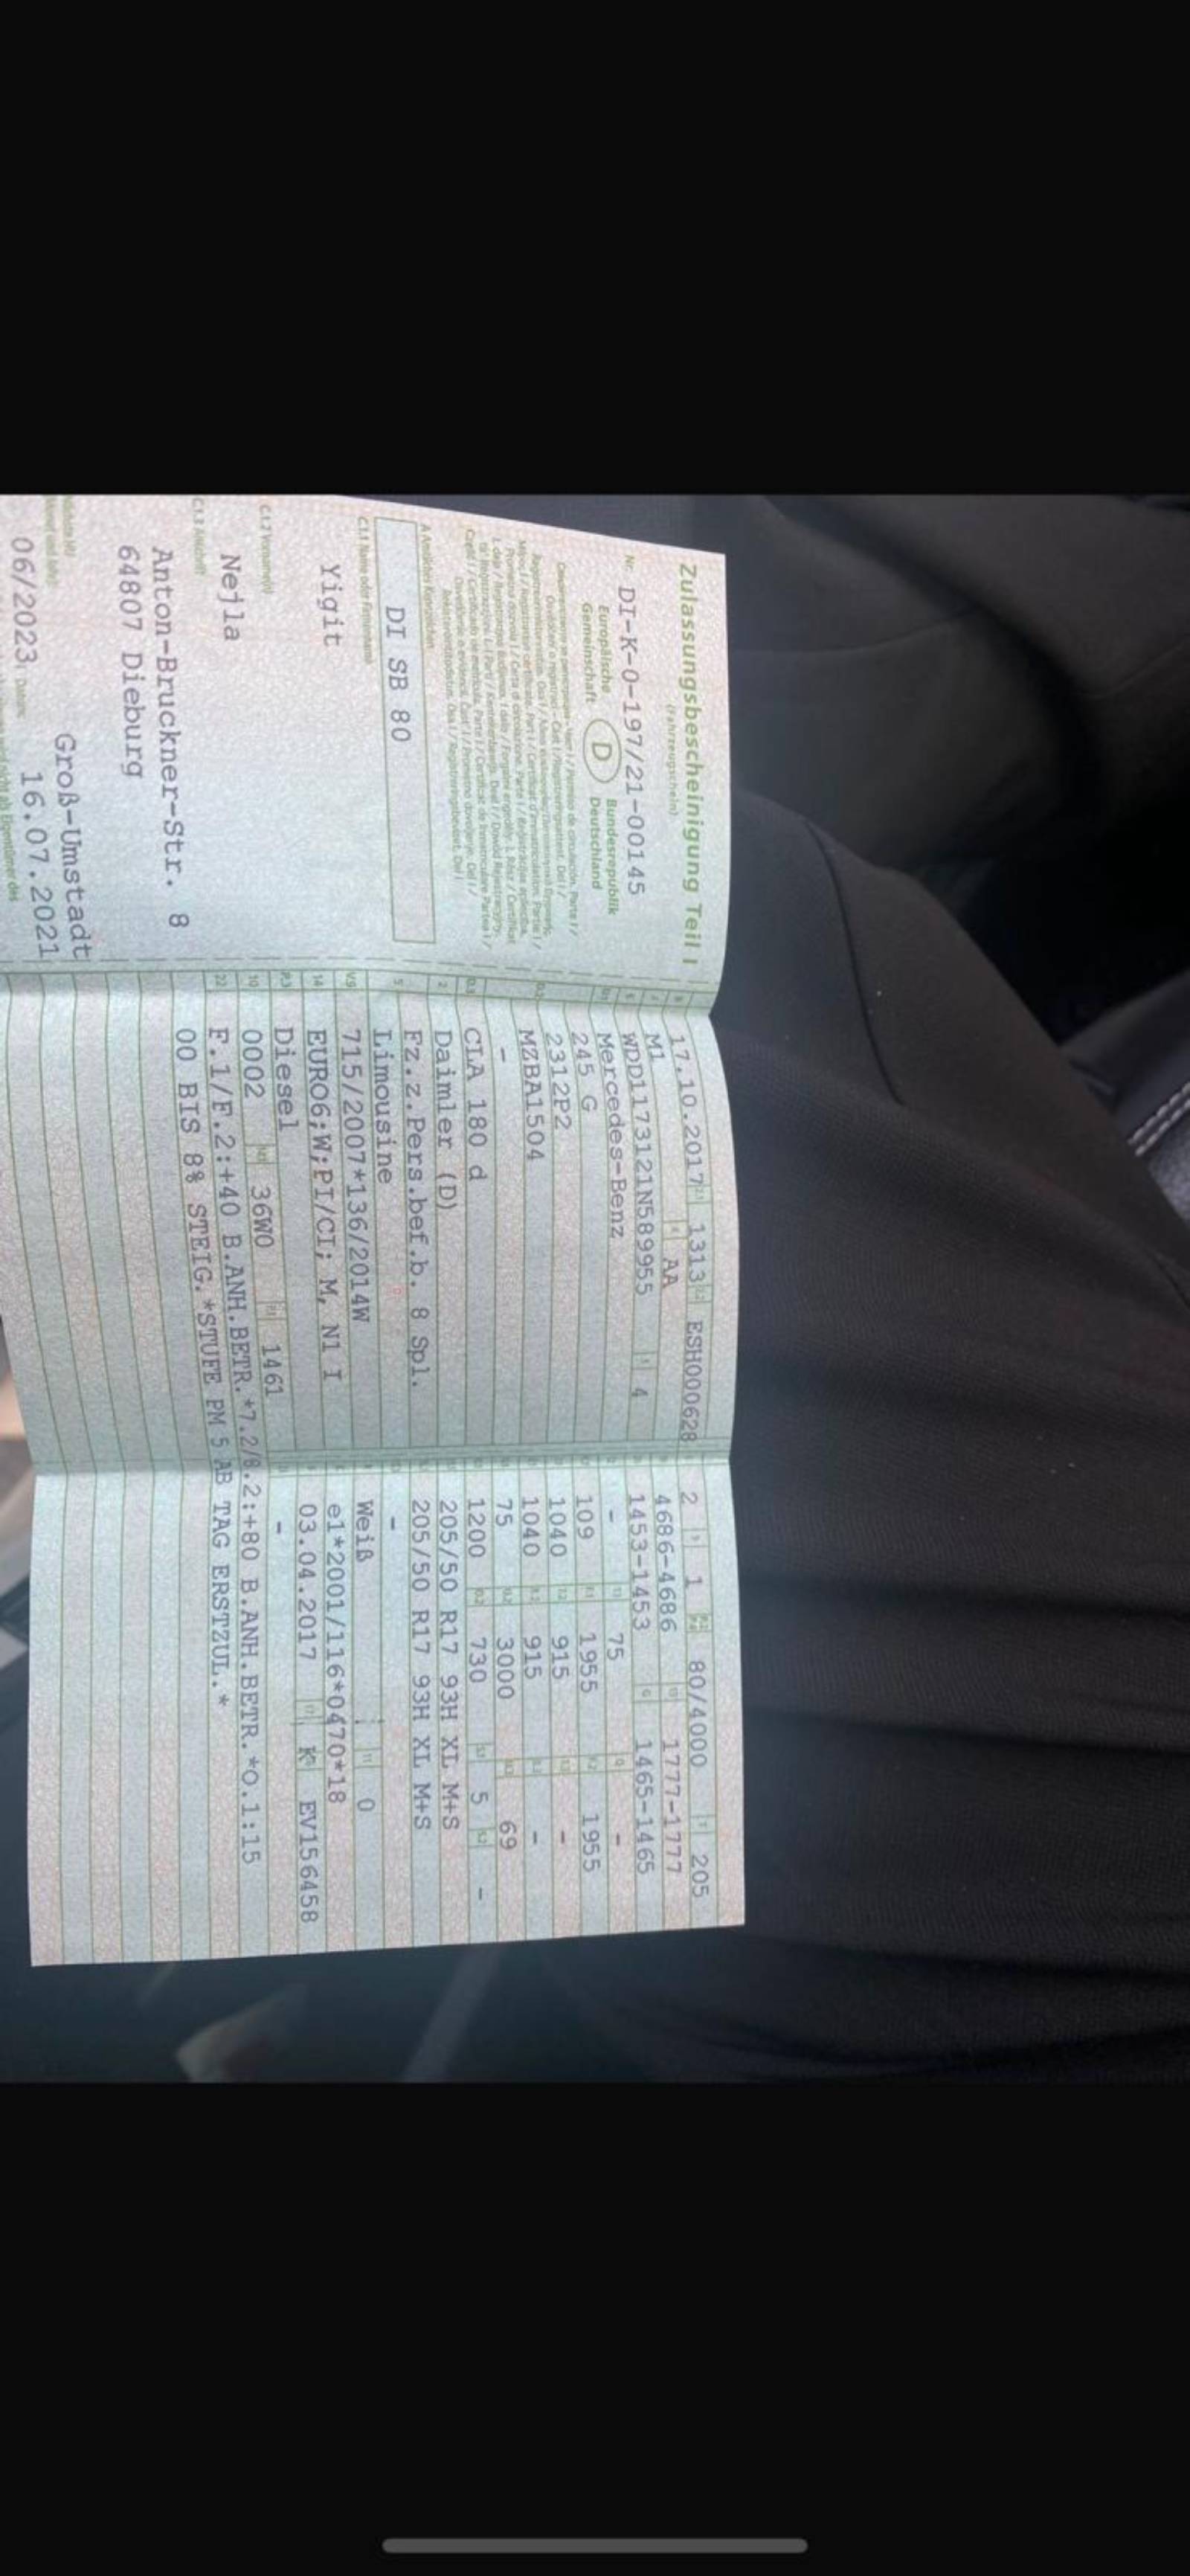 Zulassungsbescheinigung Teil I
(Fahrzeugschein)
Nr. DI-K-0-197/21-00145
Europäische Gemeinschaft
D
Bundesrepublik Deutschland
A Amtliches Kennzeichen
DI SB 80
C.1.1 Name oder Firmenname
Yigit
C.1.2 Vorname(n)
Nejla
C.1.3 Anschrift
Anton-Bruckner-Str. 8
64807 Dieburg
Groß-Umstadt
06/2023 Datum: 16.07.2021
B 17.10.2017 2.1 1313 2.2 ESH000628
J M1 4 AA
E WDD1173121N589955 3 4
D.1 Mercedes-Benz
245 G
2312P2
MZBA1504
-
D.3 CLA 180 d
2 Daimler (D)
5 Fz.z.Pers.bef.b. 8 Spl.
Limousine
V.9 715/2007*136/2014W
14 EURO6;W;PI/CI; M, N1 I
P.3 Diesel
10 0002 14.1 36W0 P.1 1461
22 F.1/F.2:+40 B.ANH.BETR.*7.2/8.2:+80 B.ANH.BETR.*O.1:15
00 BIS 8% STEIG.*STUFE PM 5 AB TAG ERSTZUL.*
2 9 1 80/4000 T 205
4686-4686 1777-1777
1453-1453 G 1465-1465
- 75 -
109 1955 1955
1040 915 -
1040 915 -
75 3000 69
1200 730 5 -
205/50 R17 93H XL M+S
205/50 R17 93H XL M+S
-
Weiß 11 0
e1*2001/116*0470*18
03.04.2017 17 K EV156458
-